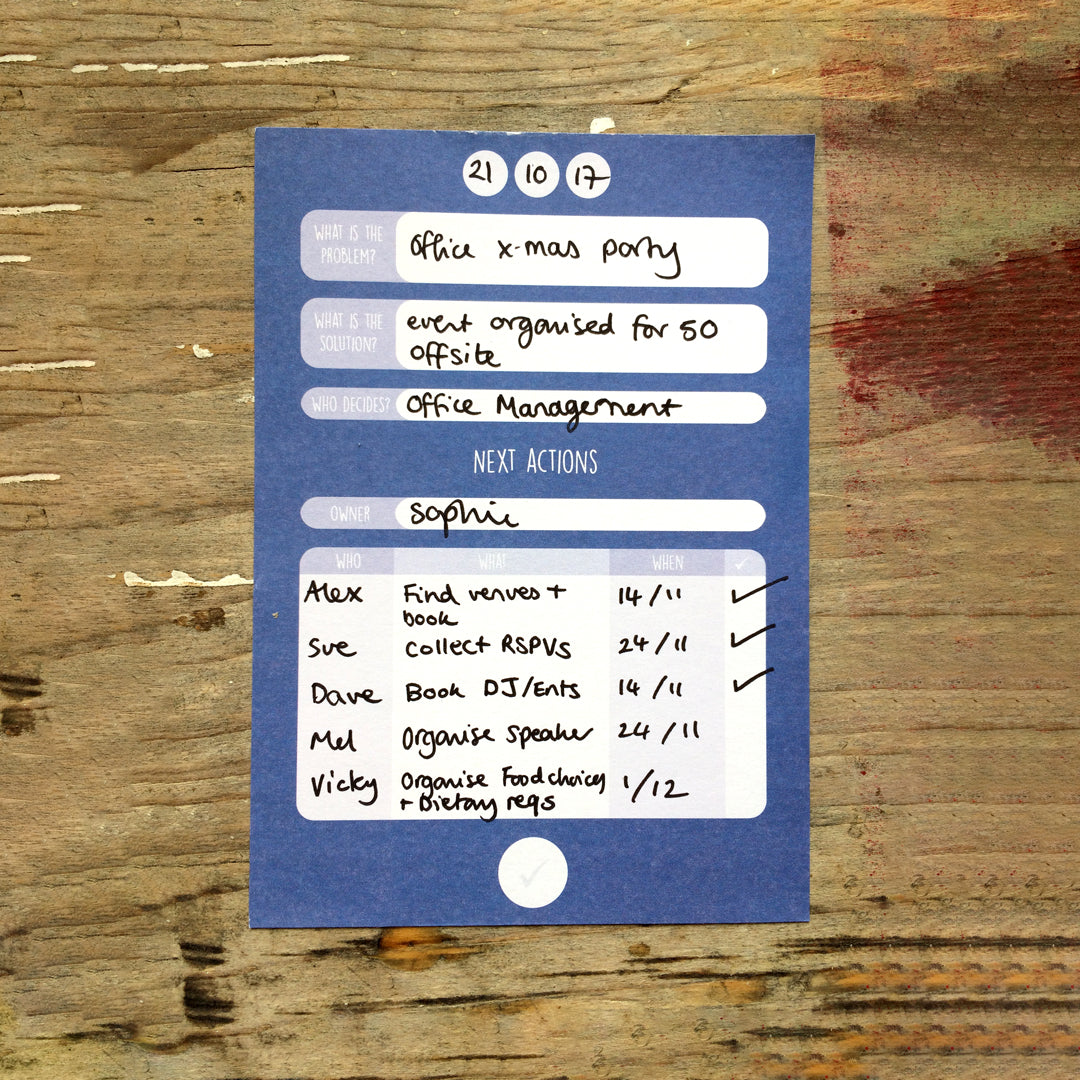 21 10 17
WHAT IS THE
PROBLEM?
Office x-mas party
WHAT IS THE
SOLUTION?
event organised for 50
offsite
WHO DECIDES? Office Management
NEXT ACTIONS
OWNER Sophie
WHO WHAT WHEN ✓
Alex Find venues + 14/11 ✓
book
Sue collect RSPVs 24/11 ✓
Dave Book DJ/Ents 14/11 ✓
Mel Organise speaker 24/11
Vicky Organise Food choices 1/12
+ Dietary reqs